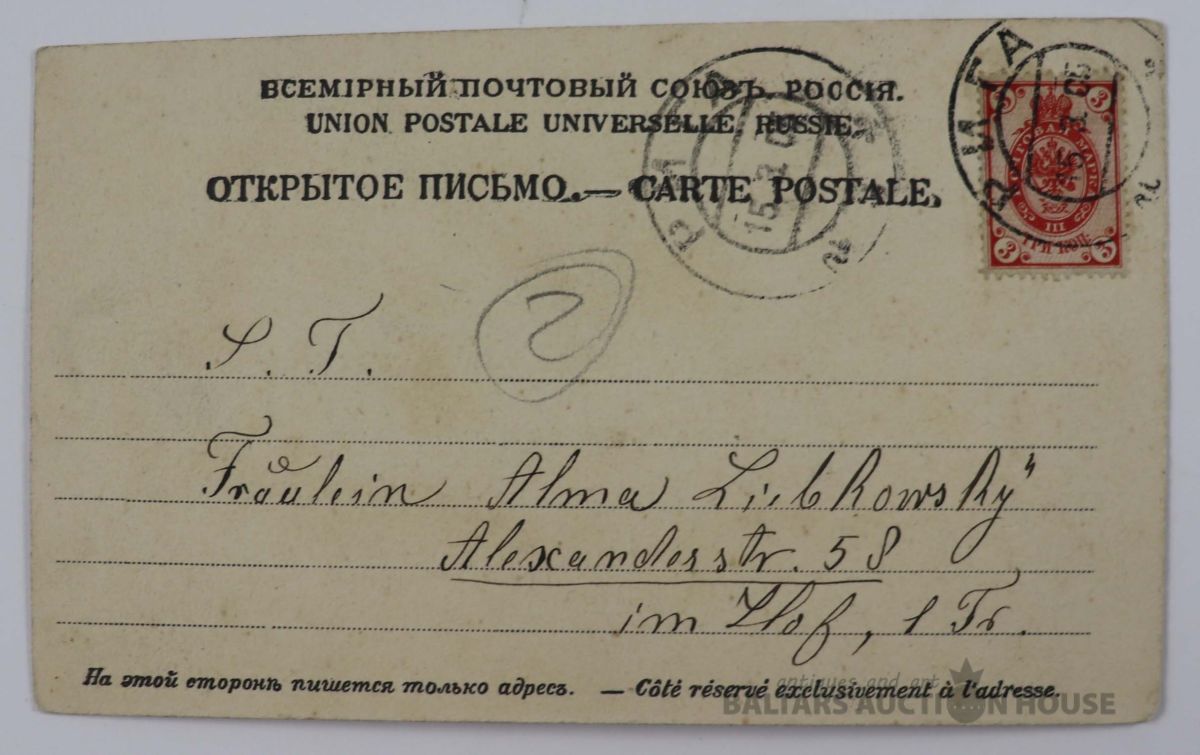 ВСЕМІРНЫЙ ПОЧТОВЫЙ СОЮЗЪ. РОССІЯ.
UNION POSTALE UNIVERSELLE. RUSSIE.
ОТКРЫТОЕ ПИСЬМО. — CARTE POSTALE.
РИГА
РИГА
15
3 3
ПОЧТОВАЯ МАРКА
III
ТРИ КОП.
3 3
2
S. T.
Fräulein Alma Liebkowsky
Alexanderstr. 58
im Hof, 1 Tr.
На этой сторонѣ пишется только адресъ. — Côté réservé exclusivement à l'adresse.
antiques and art
BALTARS AUCTION HOUSE